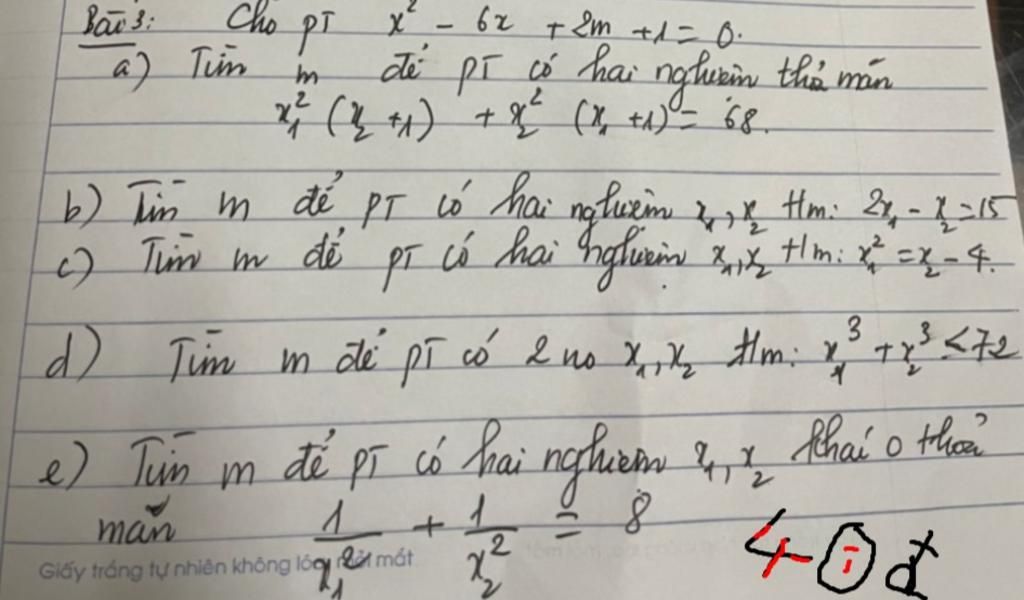 Bài 3: Cho pT x² - 6x + 2m + 1 = 0.
a) Tìm m để pT có hai nghiệm thỏa mãn
x₁² (x₂ + 1) + x₂² (x₁ + 1) = 68.
b) Tìm m để pT có hai nghiệm x₁, x₂ tm: 2x₁ - x₂ = 15
c) Tìm m để pT có hai nghiệm x₁, x₂ tm: x₁² = x₂ - 4.
d) Tìm m để pT có 2 no x₁, x₂ tm: x₁³ + x₂³ ≤ 72
e) Tìm m để pT có hai nghiệm x₁, x₂ khác 0 thỏa
mãn 1/x₁² + 1/x₂² = 8
Giấy trắng tự nhiên không lóa mỏi mắt